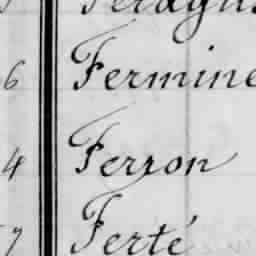 6 Fermine
4 Ferron
7 Ferté